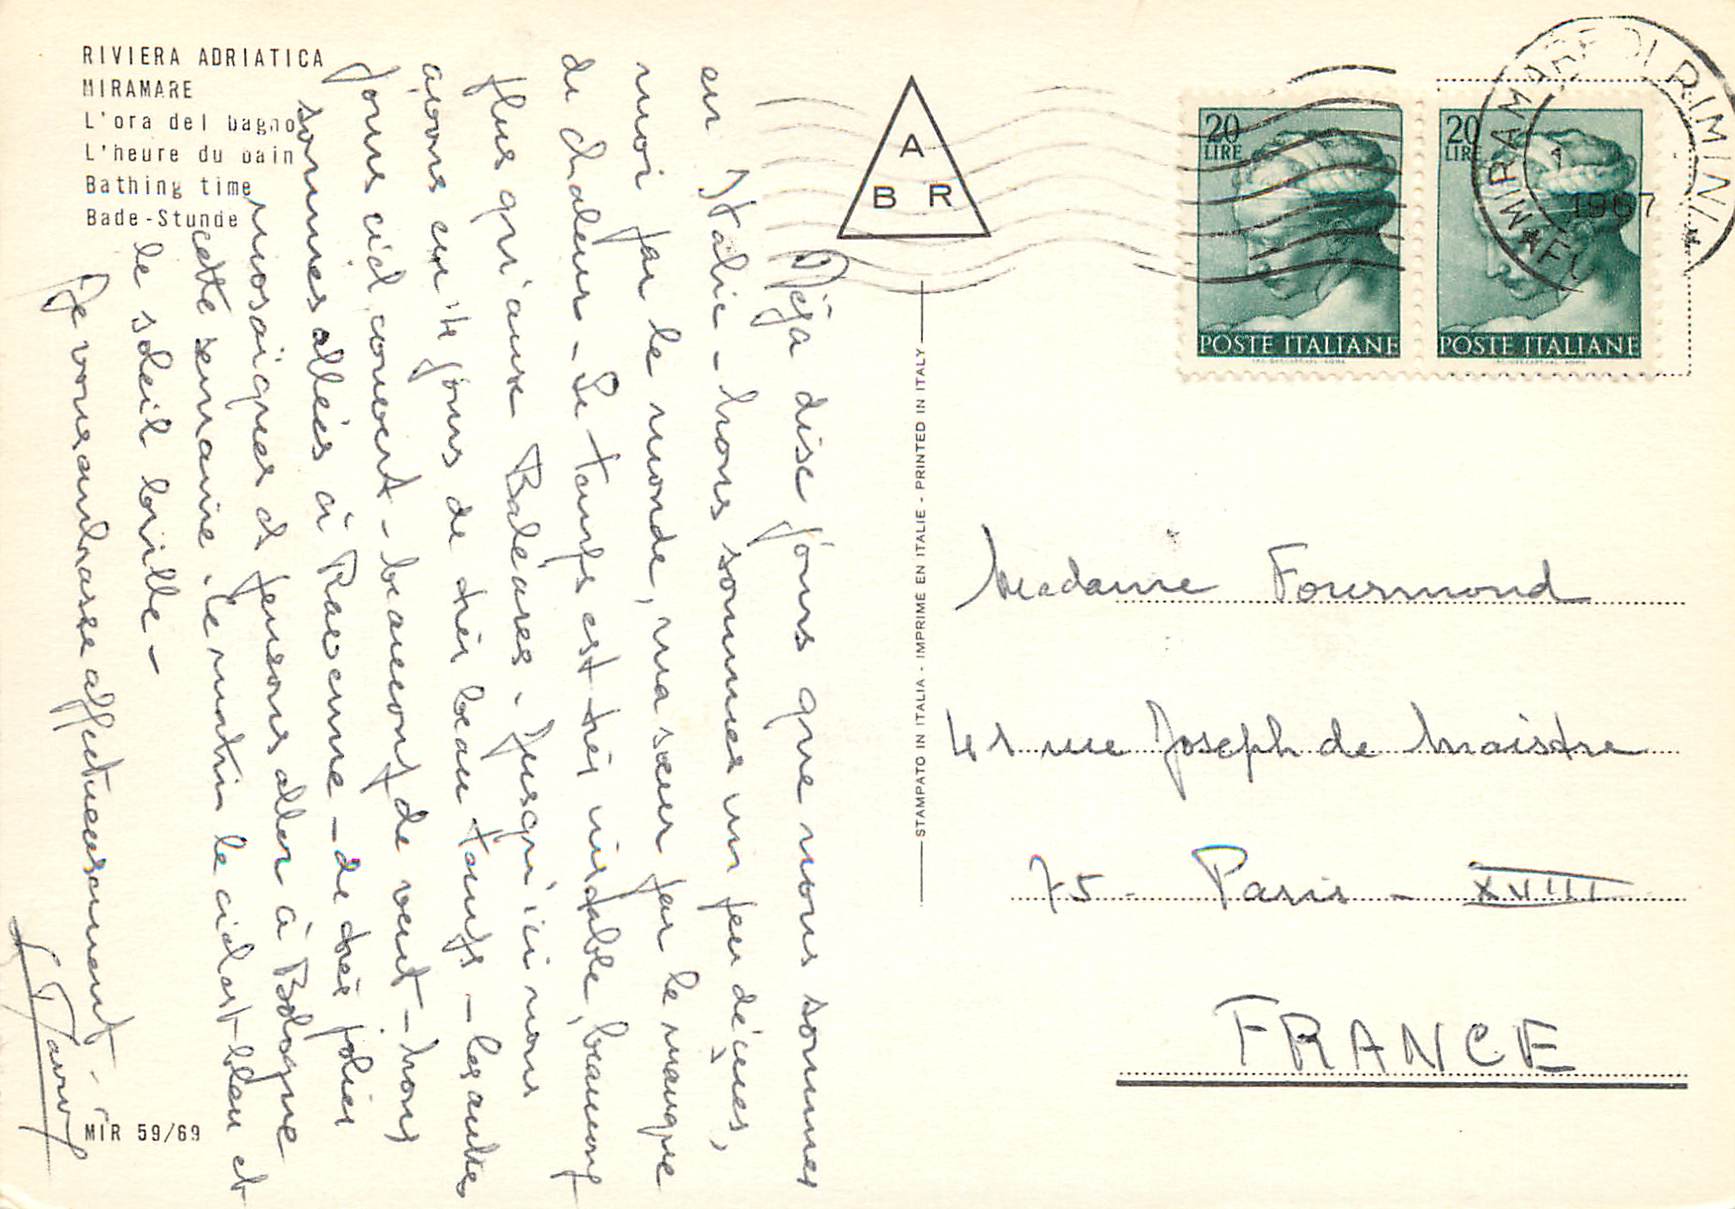 RIVIERA ADRIATICA
MIRAMARE
L'ora del bagno
L'heure du bain
Bathing time
Bade-Stunde
Déja dise jours que nous sommes
en Italie - nous sommes un peu déçues,
moi par le monde, ma sœur par le manque
de chaleur - Le temps est très instable, beaucoup
plus qu'aux Baléares - Jusqu'ici nous
avons eu 4 jours de très beau temps - les autres
jours ciel couvert - beaucoup de vent - nous
sommes allées à Ravenne - de très jolies
mosaïques et pensons aller à Bologne
cette semaine. Ce matin le ciel est bleu et
le soleil brille -
Je vous embrasse affectueusement.
MIR 59/69
A
B R
STAMPATO IN ITALIA - IMPRIME EN ITALIE - PRINTED IN ITALY
20
LIRE
POSTE ITALIANE
20
LIRE
POSTE ITALIANE
MIRAMARE DI RIMINI
1967
Madame Fourmond
41 rue Joseph de Maistre
75 - Paris - XVIII
FRANCE